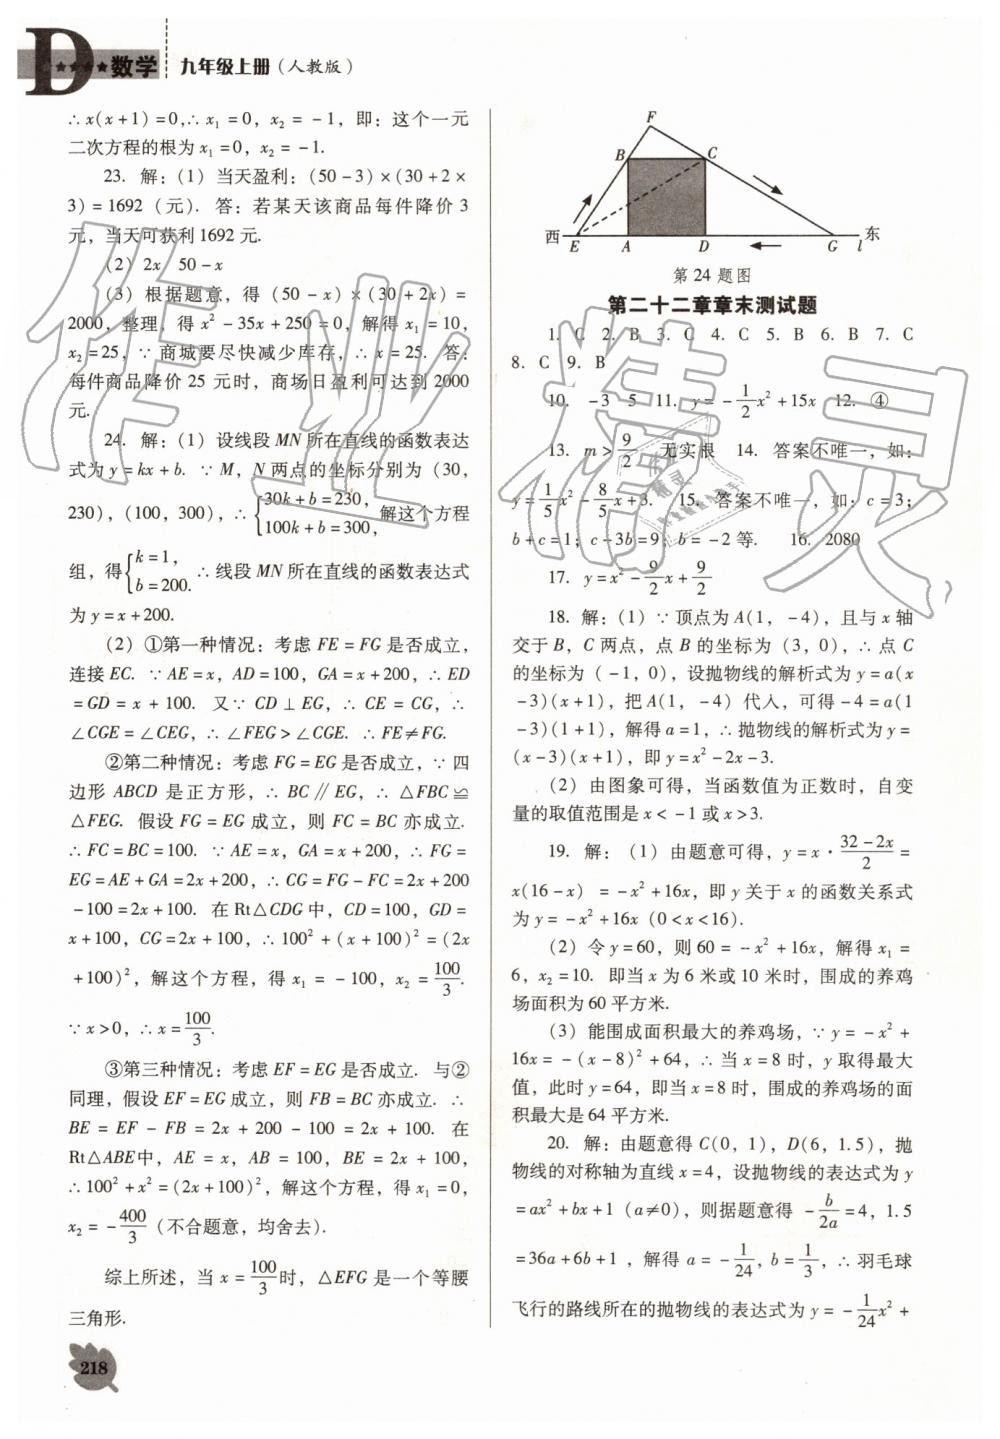 D ★★★★ 数学 九年级上册(人教版)
∴x(x+1)=0,∴x₁=0，x₂=-1，即：这个一元
二次方程的根为x₁=0，x₂=-1.
23. 解：(1) 当天盈利：(50-3)×(30+2×
3)=1692（元）. 答：若某天该商品每件降价3
元，当天可获利1692元.
(2) 2x 50-x
(3) 根据题意，得(50-x)×(30+2x)=
2000，整理，得x²-35x+250=0，解得x₁=10，
x₂=25，∵商城要尽快减少库存，∴x=25. 答：
每件商品降价25元时，商场日盈利可达到2000
元.
24. 解：(1) 设线段MN所在直线的函数表达
式为y=kx+b. ∵M，N两点的坐标分别为(30，
230)，(100，300)，∴{30k+b=230, 100k+b=300, 解这个方程
组，得{k=1, b=200. ∴线段MN所在直线的函数表达式
为y=x+200.
(2) ①第一种情况：考虑FE=FG是否成立，
连接EC. ∵AE=x，AD=100，GA=x+200，∴ED
=GD=x+100. 又∵CD⊥EG，∴CE=CG，∴
∠CGE=∠CEG，∴∠FEG>∠CGE. ∴FE≠FG.
②第二种情况：考虑FG=EG是否成立，∵四
边形ABCD是正方形，∴BC∥EG，∴△FBC≌
△FEG. 假设FG=EG成立，则FC=BC亦成立.
∴FC=BC=100. ∵AE=x，GA=x+200，∴FG=
EG=AE+GA=2x+200，∴CG=FG-FC=2x+200
-100=2x+100. 在Rt△CDG中，CD=100，GD=
x+100，CG=2x+100，∴100²+(x+100)²=(2x
+100)²，解这个方程，得x₁=-100，x₂=100/3.
∵x>0，∴x=100/3.
③第三种情况：考虑EF=EG是否成立. 与②
同理，假设EF=EG成立，则FB=BC亦成立. ∴
BE=EF-FB=2x+200-100=2x+100. 在
Rt△ABE中，AE=x，AB=100，BE=2x+100，
∴100²+x²=(2x+100)²，解这个方程，得x₁=0，
x₂=-400/3（不合题意，均舍去）.
综上所述，当x=100/3时，△EFG是一个等腰
三角形.
218
F
B C
西 E A D G l 东
第24题图
第二十二章章末测试题
1. C 2. B 3. C 4. C 5. B 6. B 7. C
8. C 9. B
10. -3 5 11. y=-1/2x²+15x 12. ④
13. m>9/2 无实根 14. 答案不唯一，如：
y=1/5x²-8/5x+3. 15. 答案不唯一，如：c=3；
b+c=1；c-3b=9；b=-2等. 16. 2080
17. y=x²-9/2x+9/2
18. 解：(1) ∵顶点为A(1，-4)，且与x轴
交于B，C两点，点B的坐标为(3，0)，∴点C
的坐标为(-1，0)，设抛物线的解析式为y=a(x
-3)(x+1)，把A(1，-4)代入，可得-4=a(1
-3)(1+1)，解得a=1，∴抛物线的解析式为y=
(x-3)(x+1)，即y=x²-2x-3.
(2) 由图象可得，当函数值为正数时，自变
量的取值范围是x<-1或x>3.
19. 解：(1) 由题意可得，y=x·(32-2x)/2=
x(16-x)=-x²+16x，即y关于x的函数关系式
为y=-x²+16x（0<x<16）.
(2) 令y=60，则60=-x²+16x，解得x₁=
6，x₂=10. 即当x为6米或10米时，围成的养鸡
场面积为60平方米.
(3) 能围成面积最大的养鸡场，∵y=-x²+
16x=-(x-8)²+64，∴当x=8时，y取得最大
值，此时y=64，即当x=8时，围成的养鸡场的面
积最大是64平方米.
20. 解：由题意得C(0，1)，D(6，1.5)，抛
物线的对称轴为直线x=4，设抛物线的表达式为y
=ax²+bx+1（a≠0），则据题意得-b/2a=4，1.5
=36a+6b+1，解得a=-1/24，b=1/3，∴羽毛球
飞行的路线所在的抛物线的表达式为y=-1/24x²+
作业精灵